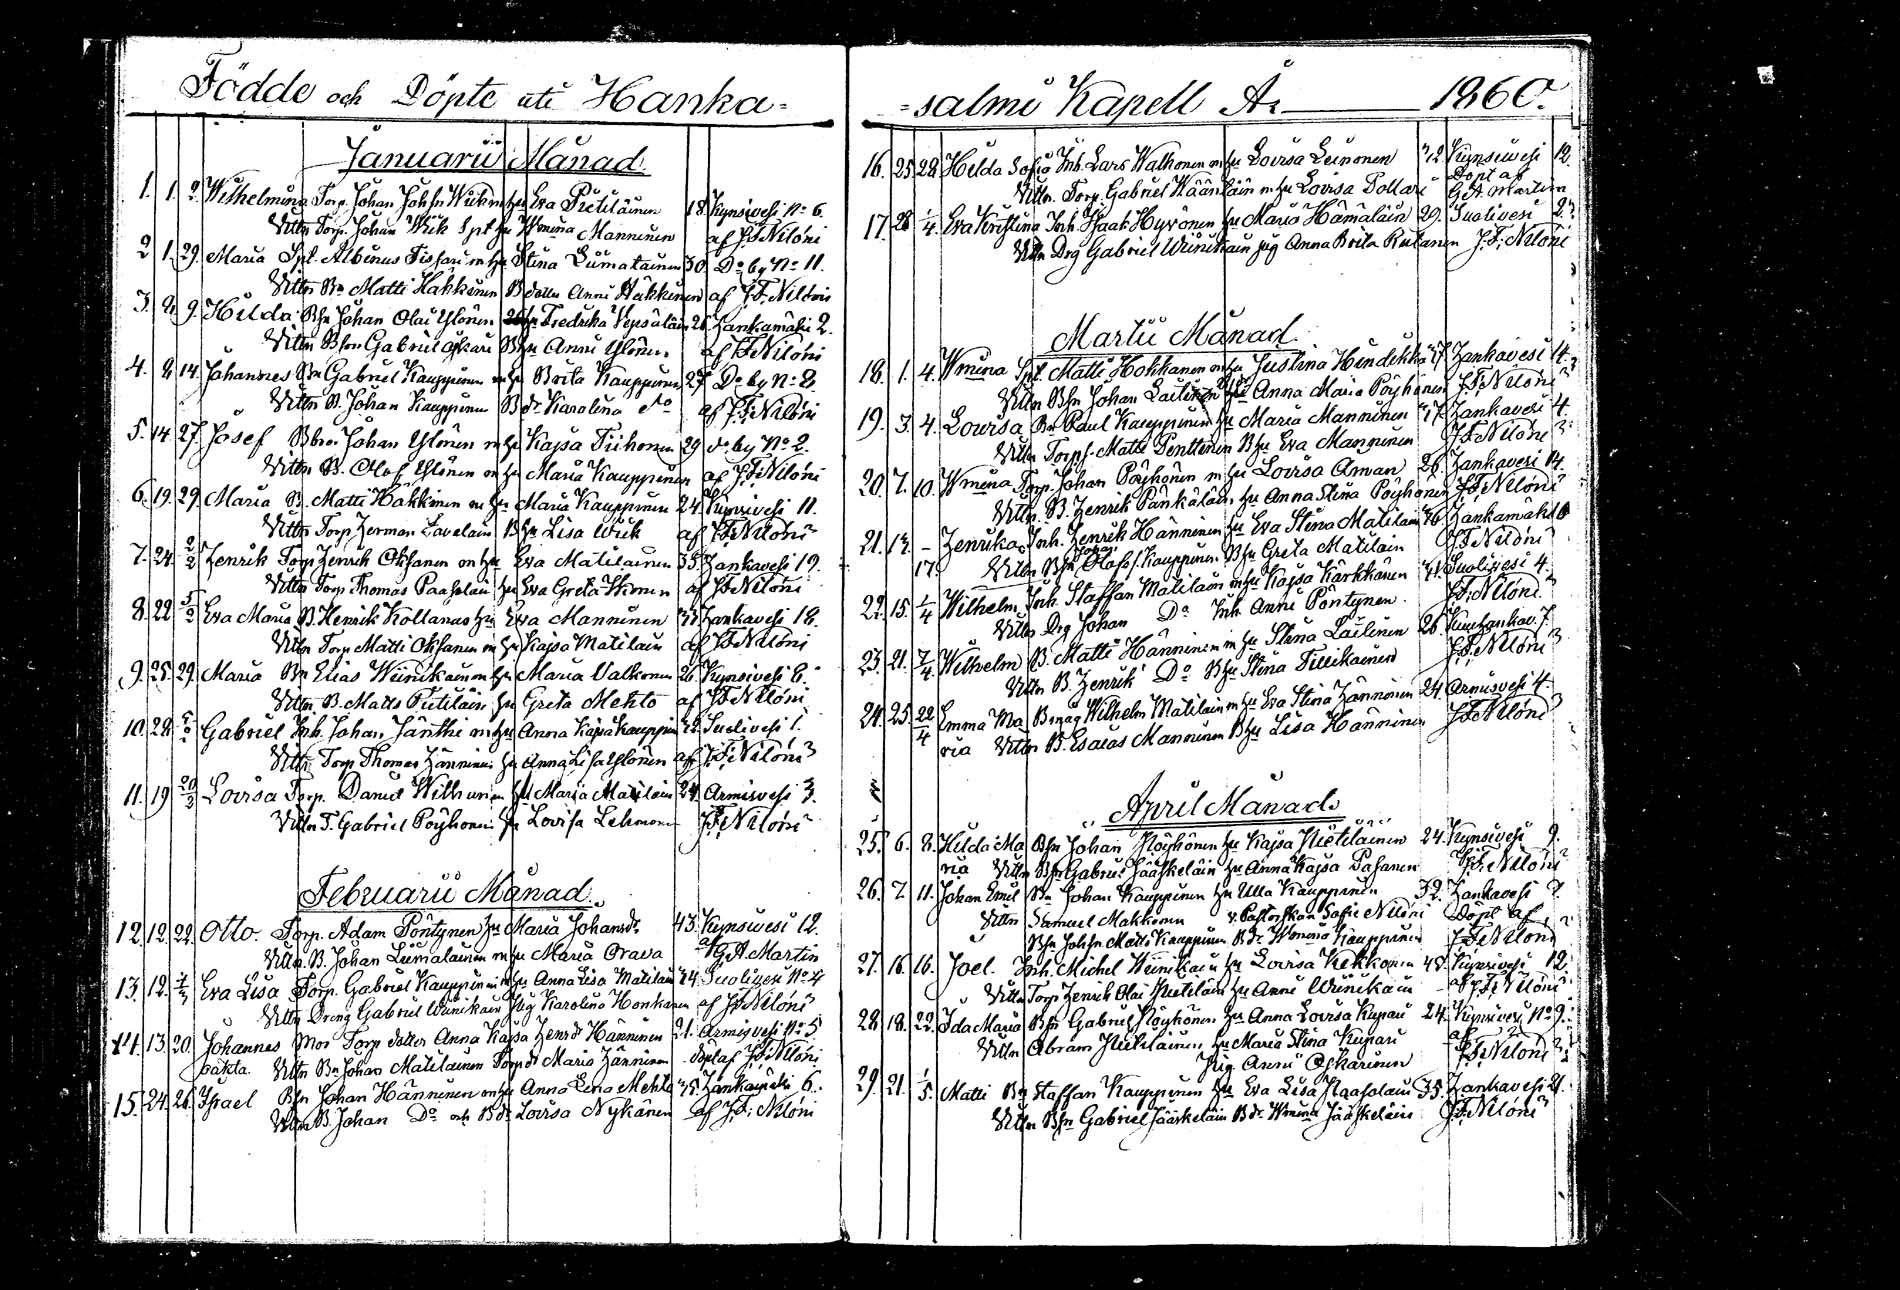 Födde och Döpte uti Hanka=
Januarii Månad
1. 1. 2. Wilhelmina Torp. Johan Johsn Wiik m hu Eva Pietiläinen 18. Kynsivesi No 6.
Vittn Torp. Johan Wiik Spt hu Wmina Manninen af J.F. Niloni
2 1. 29. Maria Spt. Albinus Tissari m hu Stina Liimatainen 30. Do by No 11.
Vittn Bn Matti Häkkinen B dotter Anni Häkkinen af J.F. Niloni
3. 8. 9. Hilda Bsn Johan Olai Ylönen hu Fredrika Vepsäläin 26. Hankamäki 2.
Vittn Bson Gabriel Oskari Bhu Anni Ylönen. af J.F. Niloni
4. 8 14. Johannes Bn Gabriel Kauppinen m hu Brita Kauppinen 27. Do by No 8.
Vittn B. Johan Kauppinen B dr Karolina do af J.F. Niloni
5. 14. 27. Josef Bbror Johan Ylönen m hu Kajsa Tiihonen 29 do by No 2.
Vittn B. Olof Ylönen m hu Maria Kauppinen af J.F. Niloni
6. 19. 29. Maria B. Matti Häkkinen m hu Maria Kauppinen 24. Kynsivesi 11.
Vittn Torp Herman Lavelain B hu Lisa Wiik af J.F. Niloni
7. 24. 2/2 Henrik Torp Henrik Oksanen m hu Eva Matilainen 35. Hankavesi 19.
Vittn Torp Thomas Paasolain hu Eva Greta af J.F. Niloni
8. 22 5/2 Eva Maria B. Henrik Kollanus hu Eva Manninen 33 Hankavesi 18.
Vittn Torp Matti Oksanen m hu Kajsa Matilain af J.F. Niloni
9. 25. 29. Maria Bn Elias Wiinikain m hu Maria Valkonen 26. Kynsivesi 8.
Vittn B. Matts Pietiläin hu Greta Mehto af J.F. Niloni
10. 28. Gabriel Inh. Johan Jäntti m hu Anna Kajsa Kauppin 22. Suolivesi 1.
Vittn Torp Thomas Hänninen hu Anna Lisa Ylönen af J.F. Niloni
11. 19 Lovisa Torp. Daniel Wilhunen hu Maria Matilain 24. Armisvesi 3.
Vittn T. Gabriel Pöyhönen hu Lovisa Lehmonen J.F. Niloni
Februarii Månad
12. 12. 22. Otto. Torp. Adam Pöntynen hu Maria Johansdr 43. Kynsivesi 12.
Vittn B. Johan Liimatainen m hu Maria Orava af G.A. Martin
13. 12. Eva Lisa Torp. Gabriel Kauppinen m hu Anna Lisa Matilain 34. Suolivesi No 4
Vittn Dreng Gabriel Wiinikain Pig Karolina Honkanen af J.F. Niloni
14. 13. 20. Johannes Mor Torp dotter Anna Kajsa Henrdr Hänninen 21. Armisvesi No 5
oäkta. Vittn Bn Johan Matilainen Torp dr Maria Hänninen döpt af J.F. Niloni
15. 24. 26. Israel Bsn Johan Hänninen m hu Anna Lena Mehto 35. Hankamäki 6.
Vittn B. Johan Do och B dr Lovisa Nykänen af J.F. Niloni
=salmi Kapell År 1860.
16. 25. 28. Hilda Sofia Inh. Lars Walkonen m hu Lovisa Leinonen 42. Kynsivesi 12.
Döpt af
Vittn. Torp. Gabriel Wäänläin m hu Lovisa Pollari G.A. Martin
17. 28 1/4. Eva Kristina Inh. Isaak Hyvönen hu Maria Hämäläin 29. Suolivesi 2.
Vittn Drg Gabriel Wiinikain pig Anna Brita Rutanen J.F. Niloni
Martii Månad
18. 1. 4. Wmina Spt. Matti Hokkanen m hu Justina Hindikka 27 Hankavesi 14.
Vittn Bsn Johan Laitinen Anna Maria Pöyhönen J.F. Niloni
19. 3. 4. Lovisa Bn Paul Kauppinen hu Maria Manninen 47. Hankavesi 4.
Vittn Torps. Matts Penttinen B hu Eva Manninen J.F. Niloni
20. 7. 10. Wmina Torp. Johan Pöyhönen m hu Lovisa Åman 26. Hankavesi 14.
Vittn. B. Henrik Pänkäläin hu Anna Stina Pöyhönen J.F. Niloni
21. 12. – Henrika Inh. Henrik Hänninen hu Eva Stina Matilain 46. Hankamäki 6
17. Vittn Bsn Johan Olofs s. Kauppinen B hu Greta Matilain J.F. Niloni
22. 15. 1/4 Wilhelm Inh. Staffan Matilain m hu Kajsa Kärkkänen 41. Suolivesi 4.
Vittn Drg Johan Do Inh. Anni Pöntynen. J.F. Niloni
23. 21. 7/4. Wilhelm B. Matti Hänninen m hu Stina Laitinen 26. Hankav. 7.
Vittn B. Henrik Do B hu Stina Tiilikainen J.F. Niloni
24. 25. 22/4 Emma Ma Bmåg Wilhelm Matilain m hu Eva Stina Hänninen 24. Armisvesi 4.
ria Vittn B. Esaias Manninen B hu Lisa Hänninen J.F. Niloni
April Månad
25. 6. 8. Hilda Ma Bsn Johan Pöyhönen hu Kajsa Pietiläinen 24. Kynsivesi 9.
ria Vittn Bsn Gabriel Jääskeläin hu Anna Kajsa Pasanen J.F. Niloni
26. 7. 11. Johan Emil Bn Johan Kauppinen hu Ulla Kauppinen 32. Hankavesi 7
Vittn Samuel Makkonen v. Pastorskan Sofie Niloni Döpt af
Bsn Johsn Matts Kauppinen B dr Wmina Kauppinen J.F. Niloni
27. 16. 16. Joel. Inh. Michel Wiinikain hu Lovisa Kekkonen 43. Kynsivesi 12.
Vittn Torp Henrik Olai Pietiläin hu Anni Wiinikain af J.F. Niloni
28 18. 22. Ida Maria Bsn Gabriel Pöyhönen hu Anna Lovisa Kupari 24. Kynsivesi No 9.
Vittn Abram Pietiläinen hu Maria Stina Kupari af
Pig Anni Oskarinen J.F. Niloni
29. 21. 1/5. Matti Bn Staffan Kauppinen hu Eva Lisa Paasolain 35. Hankavesi 21.
Vittn Bsn Gabriel Jääskeläin B dr Wmina Jääskeläin J.F. Niloni